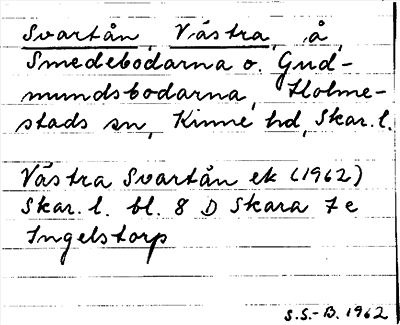 Svartån, Västra, å,
Smedebodarna o. Gud-
mundsbodarna, Holme-
stads sn, Kinne hd, Skar. l.
Västra Svartån ek (1962)
Skar. l. bl. 8 D Skara 7 e
Ingelstorp
S.S.-B. 1962